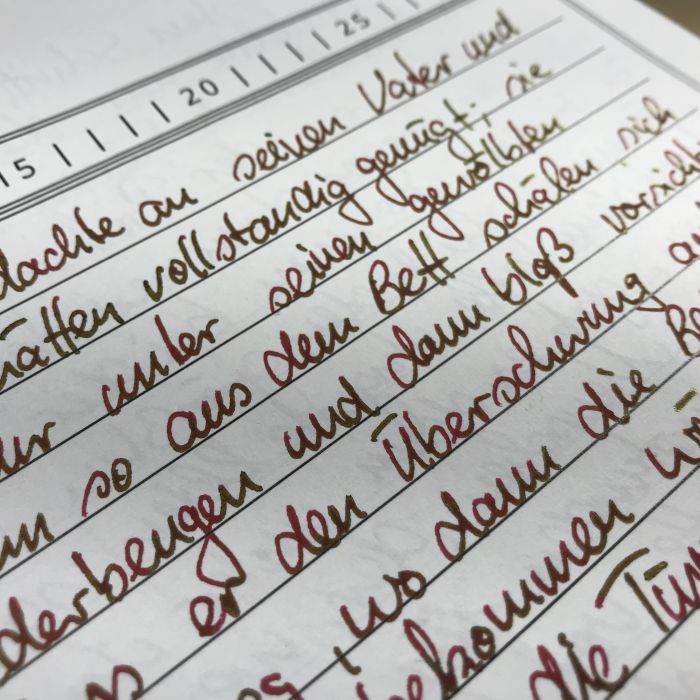 15 20 25
dachte an seinen Vater und
hätten vollständig genügt; sie
ur unter seinen gewölbten
hn so aus dem Bett schälen, sich
derbeugen und dann bloß vorsichti
s er den Überschwung au
og, wo dann die Be
bekommen wü
die Tür